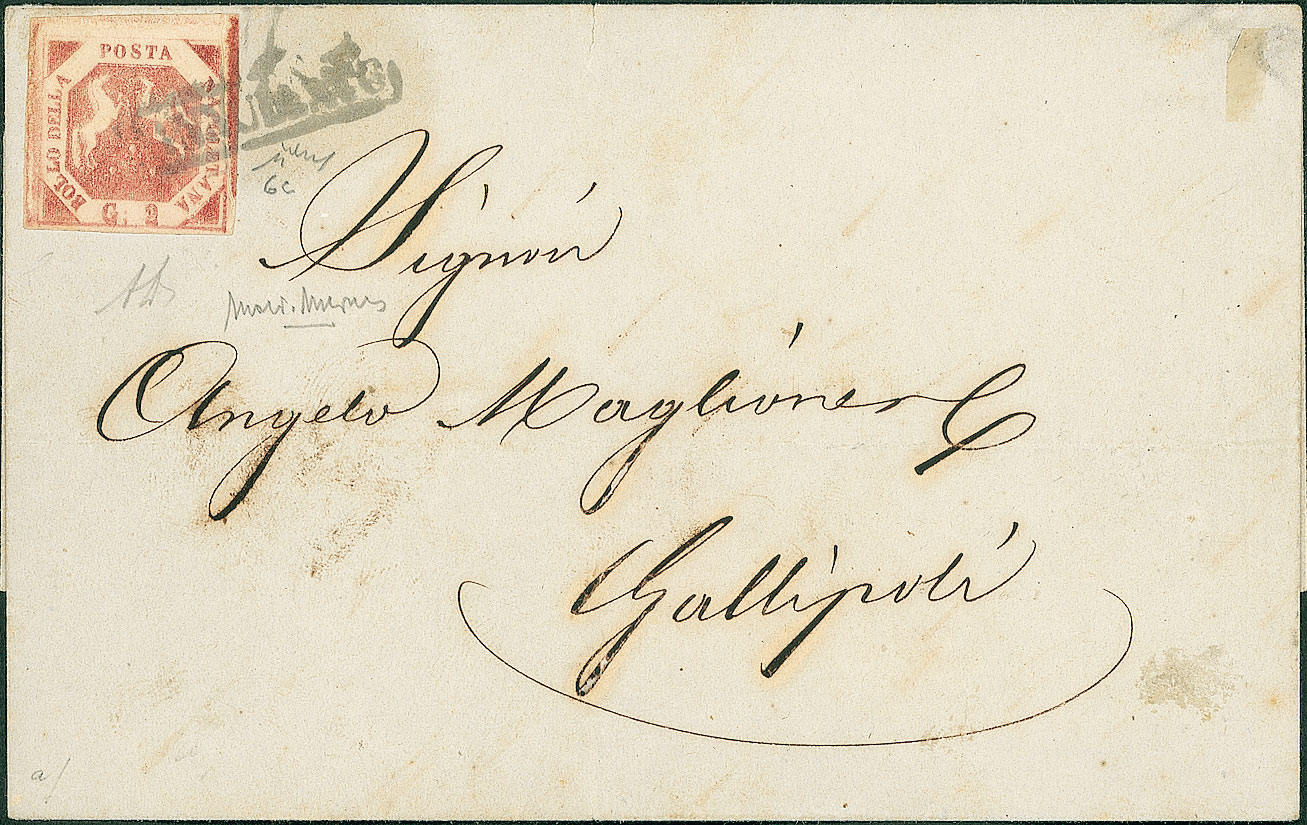 POSTA
BOLLO DELLA
NAPOLETANA
G. 2
6c
Signor
Angelo Maglione
Gallipoli
a/